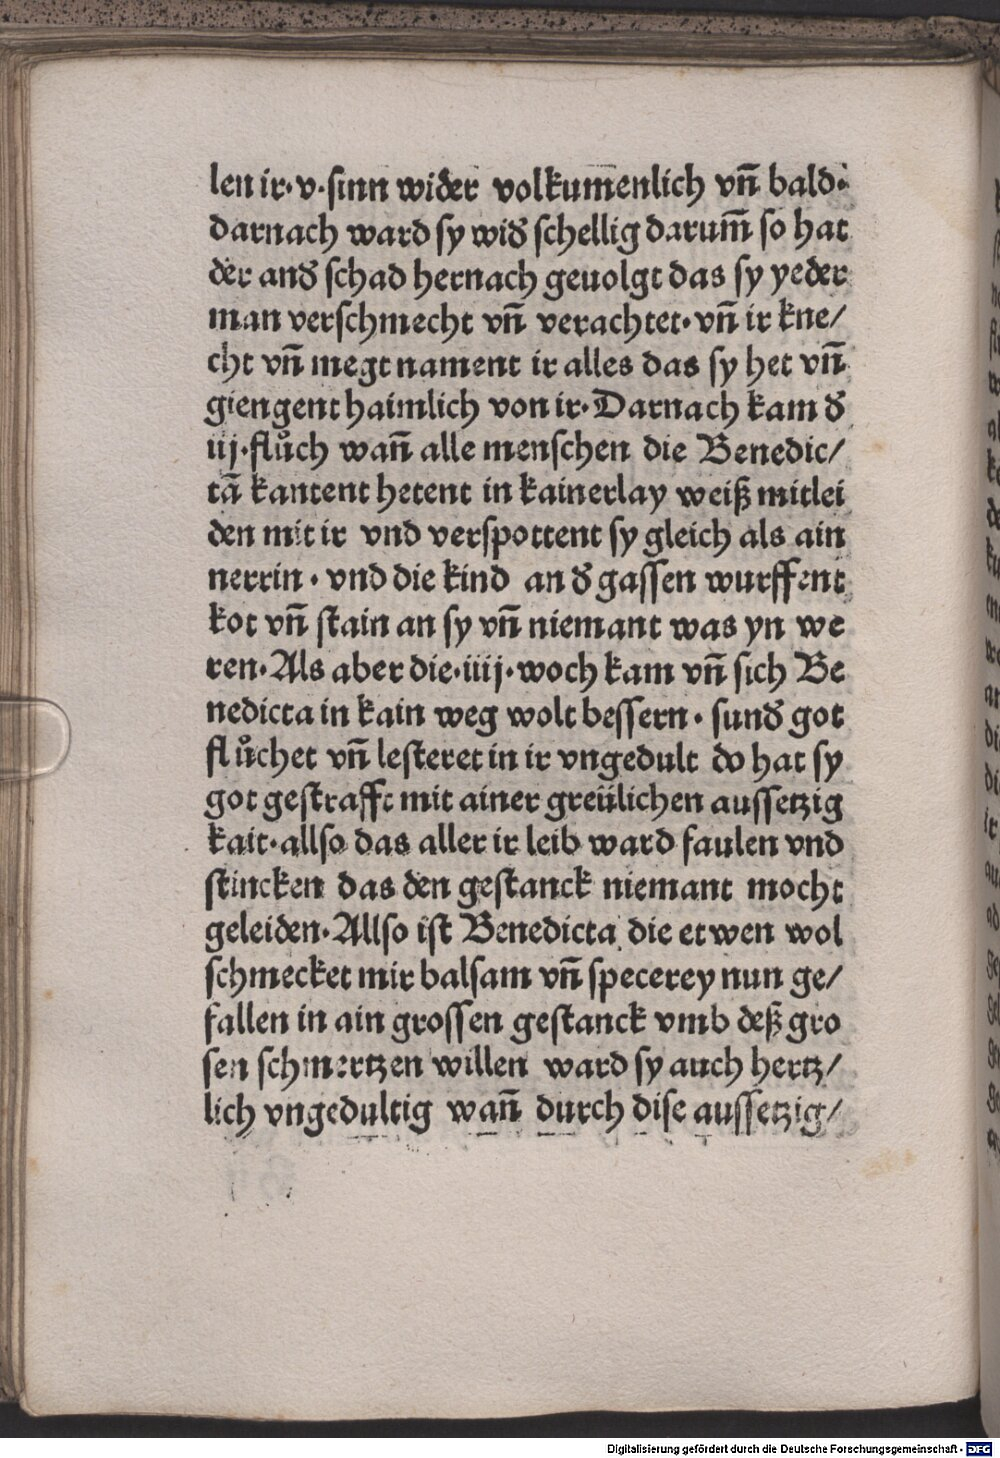 len ir·v·sinn wider volkumenlich vn̄ bald·
darnach ward sy wid᷑ schellig darum̄ so hat
der and᷑ schad hernach geuolgt das sy yeder
man verschmecht vn̄ verachtet·vn̄ ir kne/
cht vn̄ megt nament ir alles das sy het vn̄
giengent haimlich von ir·Darnach kam d᷑
iij·flůch wan̄ alle menschen die Benedic/
tā kantent hetent in kainerlay weiß mitlei
den mit ir vnd verspottent sy gleich als ain
nerrin·vnd die kind an d᷑ gassen wurffent
kot vn̄ stain an sy vn̄ niemant was yn we
ren·Als aber die·iiij·woch kam vn̄ sich Be
nedicta in kain weg wolt bessern·sund᷑ got
flůchet vn̄ lesteret in ir vngedult do hat sy
got gestrafft mit ainer greülichen aussetzig
kait·allso das aller ir leib ward faulen vnd
stincken das den gestanck niemant mocht
geleiden·Allso ist Benedicta die etwen wol
schmecket mir balsam vn̄ specerey nun ge/
fallen in ain grossen gestanck vmb deß gro
sen schmertzen willen ward sy auch hertz/
lich vngedultig wan̄ durch dise aussetzig/
Digitalisierung gefördert durch die Deutsche Forschungsgemeinschaft - DFG